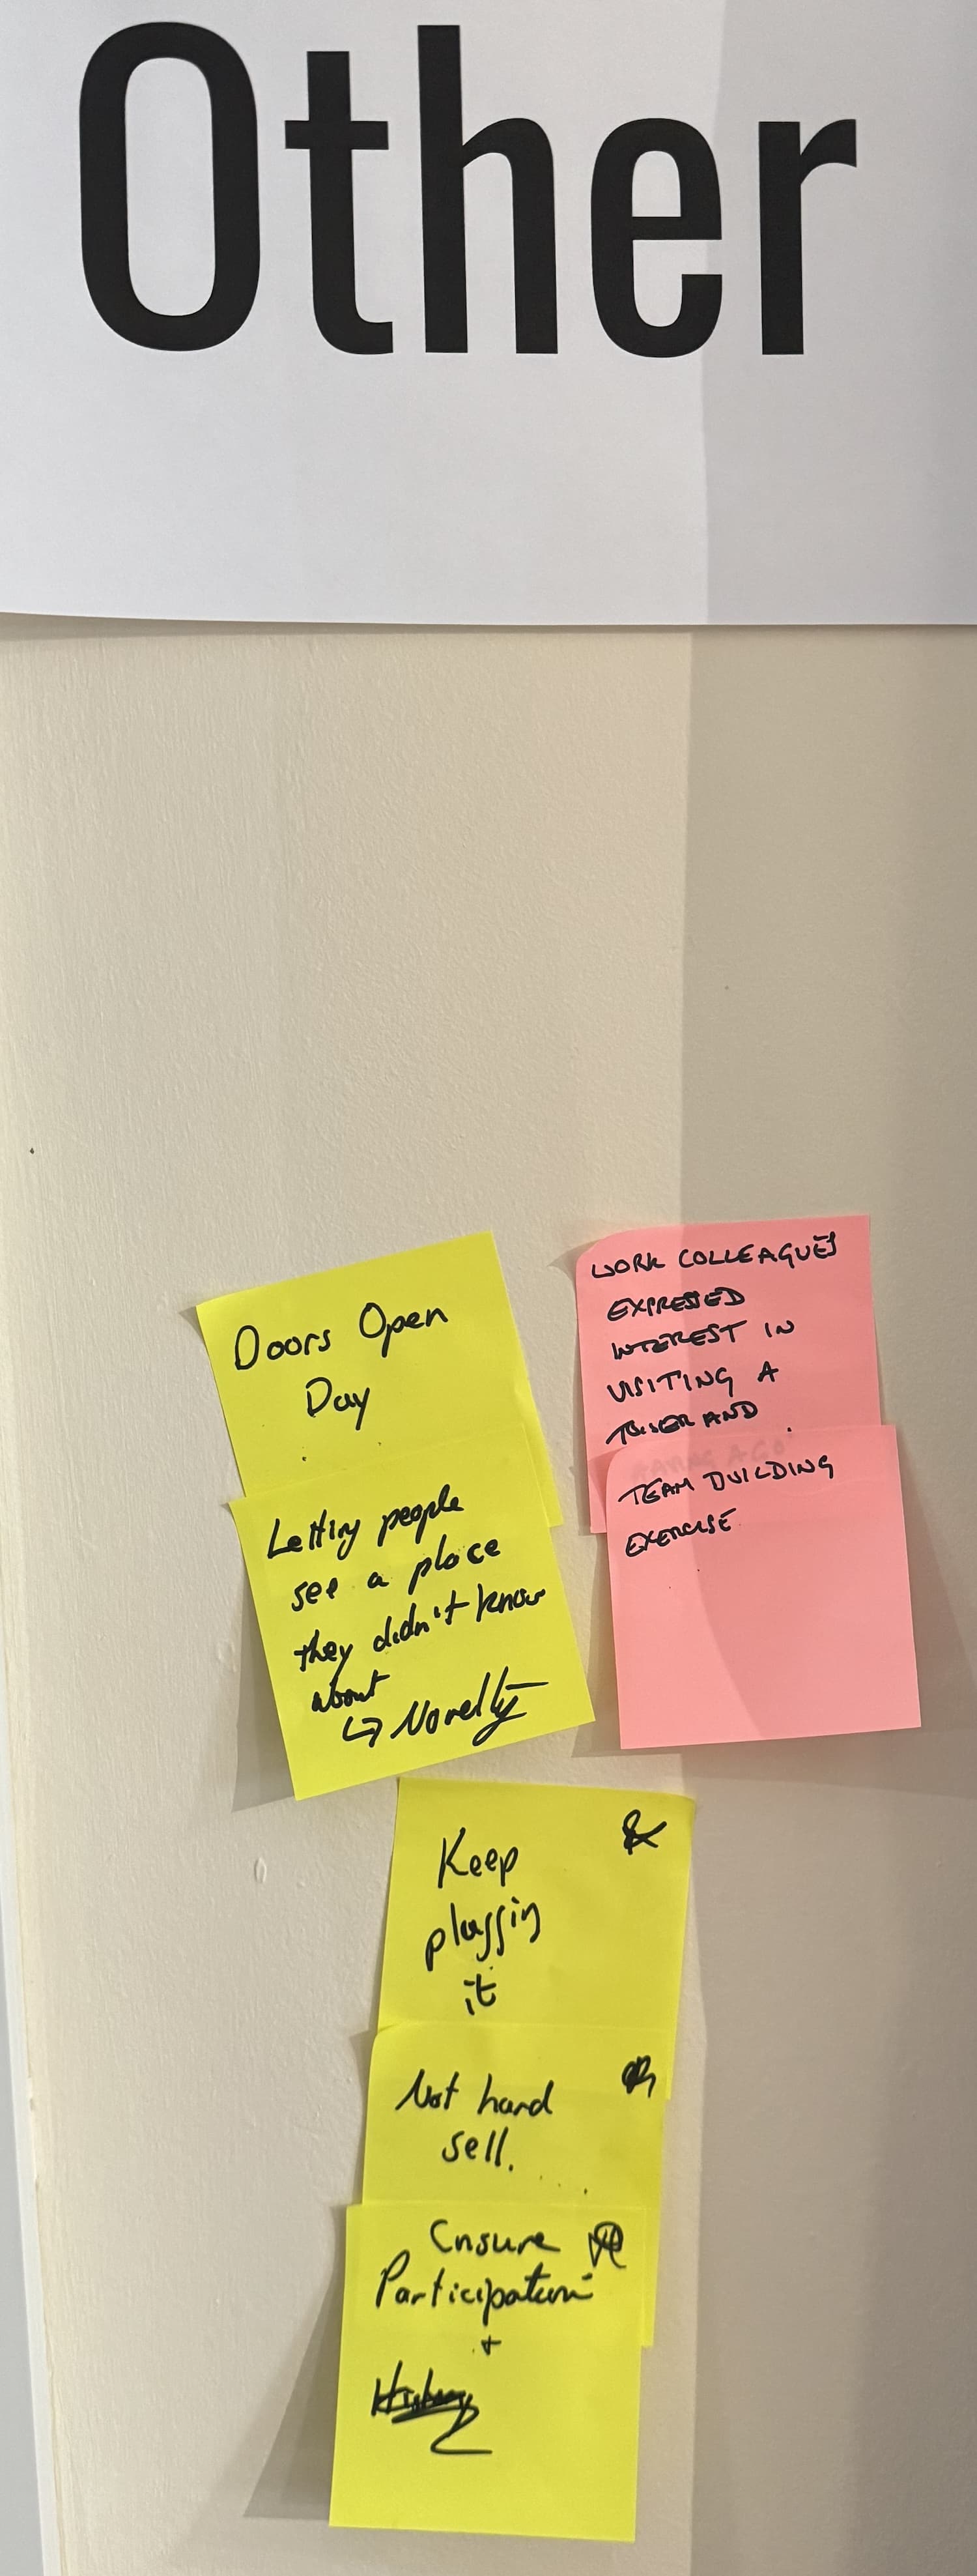 Other
Doors Open
Day
Letting people
see a place
they didn't know
about
↳ Novelty
WORK COLLEAGUES
EXPRESSED
INTEREST IN
VISITING A
AND
TEAM BUILDING
EXERCISE
Keep
pluggin
it
Not hard
sell.
Ensure
Participation
+